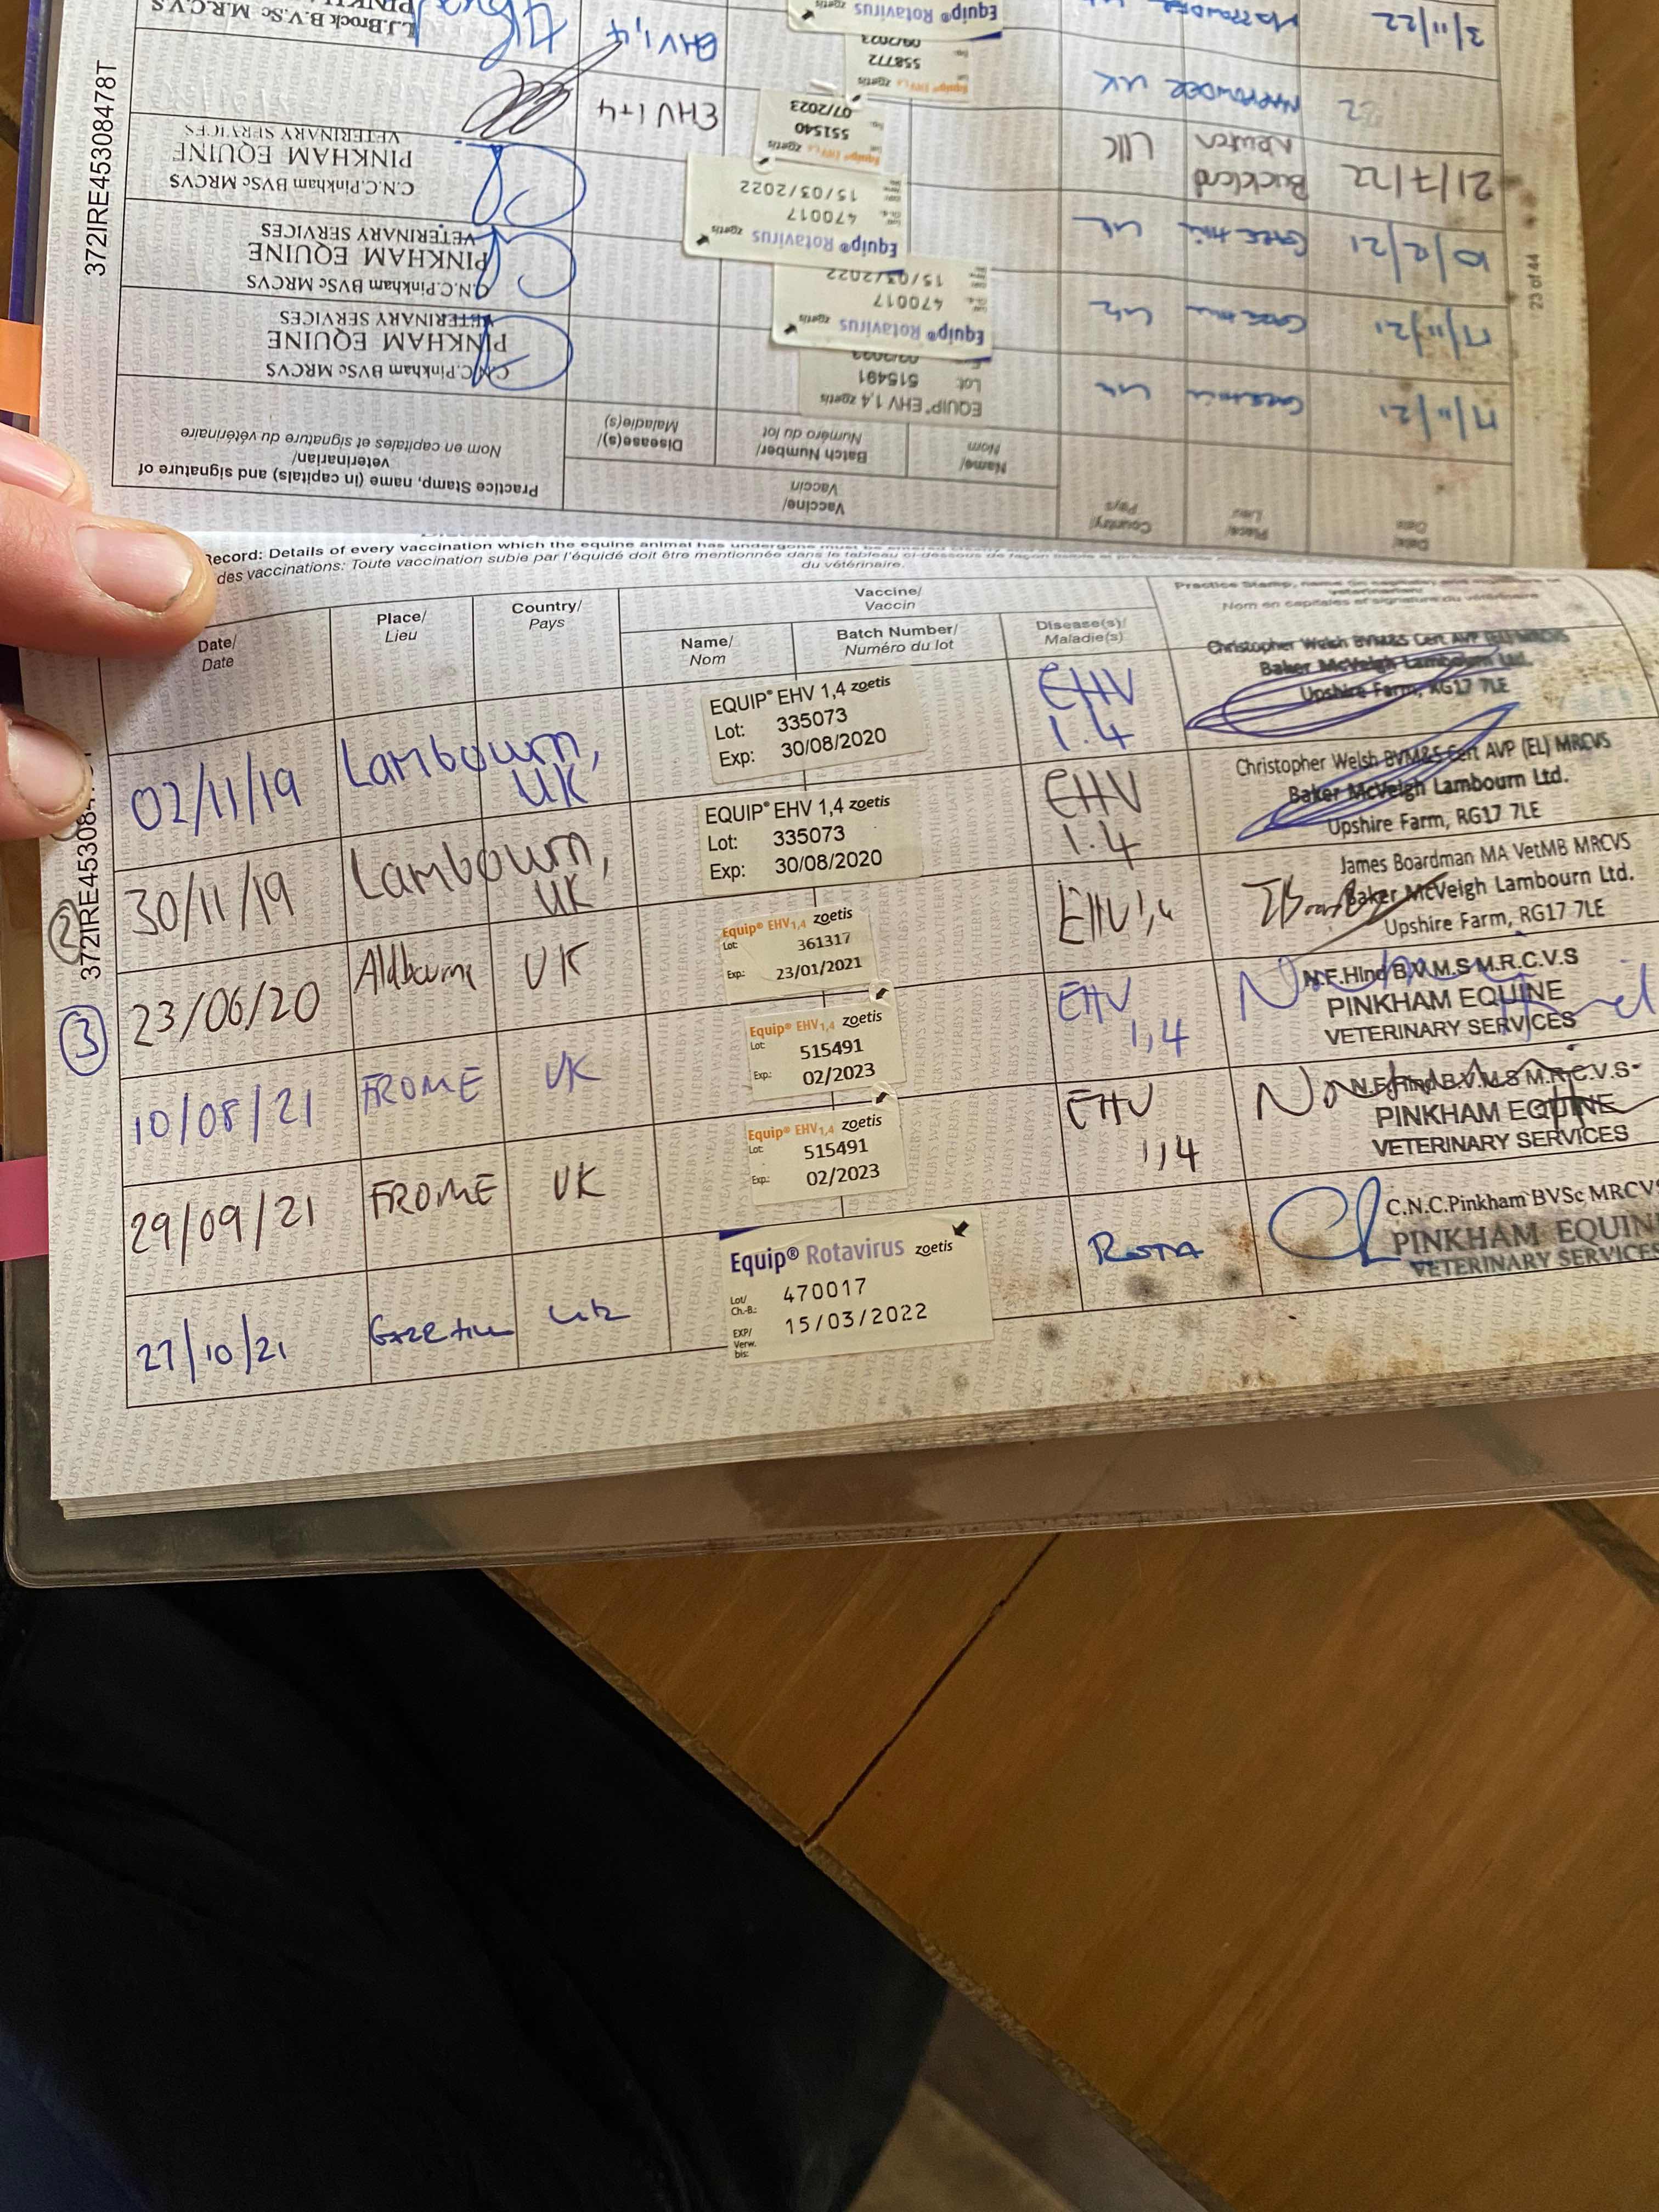 Record: Details of every vaccination which the equine animal has undergone must be entered
des vaccinations: Toute vaccination subie par l'équidé doit être mentionnée dans le tableau ci-dessous de façon
du vétérinaire.
Date/ Date
Place/ Lieu
Country/ Pays
Vaccine/ Vaccin
Name/ Nom
Batch Number/ Numéro du lot
Disease(s)/ Maladie(s)
Practice Stamp, name
veterinarian/
Nom en capitales et signature du vétérinaire
02/11/19
Lambourn, UK
EQUIP® EHV 1,4 zoetis
Lot: 335073
Exp: 30/08/2020
EHV 1.4
Christopher Welsh BVM&S Cert AVP (EL) MRCVS
Baker McVeigh Lambourn Ltd.
Upshire Farm, RG17 7LE
30/11/19
Lambourn, UK
EQUIP® EHV 1,4 zoetis
Lot: 335073
Exp: 30/08/2020
EHV 1.4
Christopher Welsh BVM&S Cert AVP (EL) MRCVS
Baker McVeigh Lambourn Ltd.
Upshire Farm, RG17 7LE
2
23/06/20
Aldbourne
UK
Equip® EHV1,4 zoetis
Lot: 361317
Exp.: 23/01/2021
EHV 1,4
James Boardman MA VetMB MRCVS
Baker McVeigh Lambourn Ltd.
Upshire Farm, RG17 7LE
3
10/08/21
FROME
UK
Equip® EHV1,4 zoetis
Lot: 515491
Exp.: 02/2023
EHV 1,4
N.F.Hind B.V.M.S M.R.C.V.S
PINKHAM EQUINE
VETERINARY SERVICES
29/09/21
FROME
UK
Equip® EHV1,4 zoetis
Lot: 515491
Exp.: 02/2023
EHV 1,4
N.F.Hind B.V.M.S M.R.C.V.S
PINKHAM EQUINE
VETERINARY SERVICES
27/10/21
UK
Equip® Rotavirus zoetis
Lot/ Ch.-B.: 470017
EXP/ Verw. bis: 15/03/2022
ROTA
C.N.C.Pinkham BVSc MRCVS
PINKHAM EQUINE
VETERINARY SERVICES
372IRE45308478T
23 of 44
Date/ Date
Place/ Lieu
Country/ Pays
Vaccine/ Vaccin
Name/ Nom
Batch Number/ Numéro du lot
Disease(s)/ Maladie(s)
Practice Stamp, name (in capitals) and signature of
veterinarian/
Nom en capitales et signature du vétérinaire
17/11/21
UK
EQUIP® EHV 1,4 zoetis
Lot: 515491
02/2023
C.N.C.Pinkham BVSc MRCVS
PINKHAM EQUINE
VETERINARY SERVICES
17/11/21
UK
Equip® Rotavirus zoetis
470017
15/03/2022
C.N.C.Pinkham BVSc MRCVS
PINKHAM EQUINE
VETERINARY SERVICES
10/12/21
UK
Equip® Rotavirus zoetis
470017
15/03/2022
C.N.C.Pinkham BVSc MRCVS
PINKHAM EQUINE
VETERINARY SERVICES
21/7/22
Buckland Newton
UK
Equip® EHV 1,4 zoetis
551540
07/2023
EHV 1+4
22
MAPPOWDER UK
Equip® EHV 1,4 zoetis
558772
09/2023
EHV 1,4
L.J.Brock B.V.Sc M.R.C.V.S
3/11/22
MAPPOWDER
Equip® Rotavirus zoetis
372IRE45308478T